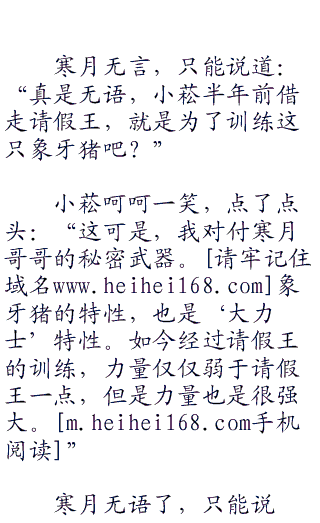 寒月无言，只能说道：
“真是无语，小菘半年前借
走请假王，就是为了训练这
只象牙猪吧？”
小菘呵呵一笑，点了点
头：“这可是，我对付寒月
哥哥的秘密武器。[请牢记住
域名www.heihei168.com]象
牙猪的特性，也是‘大力
士’特性。如今经过请假王
的训练，力量仅仅弱于请假
王一点，但是力量也是很强
大。[m.heihei168.com手机
阅读]”
寒月无语了，只能说